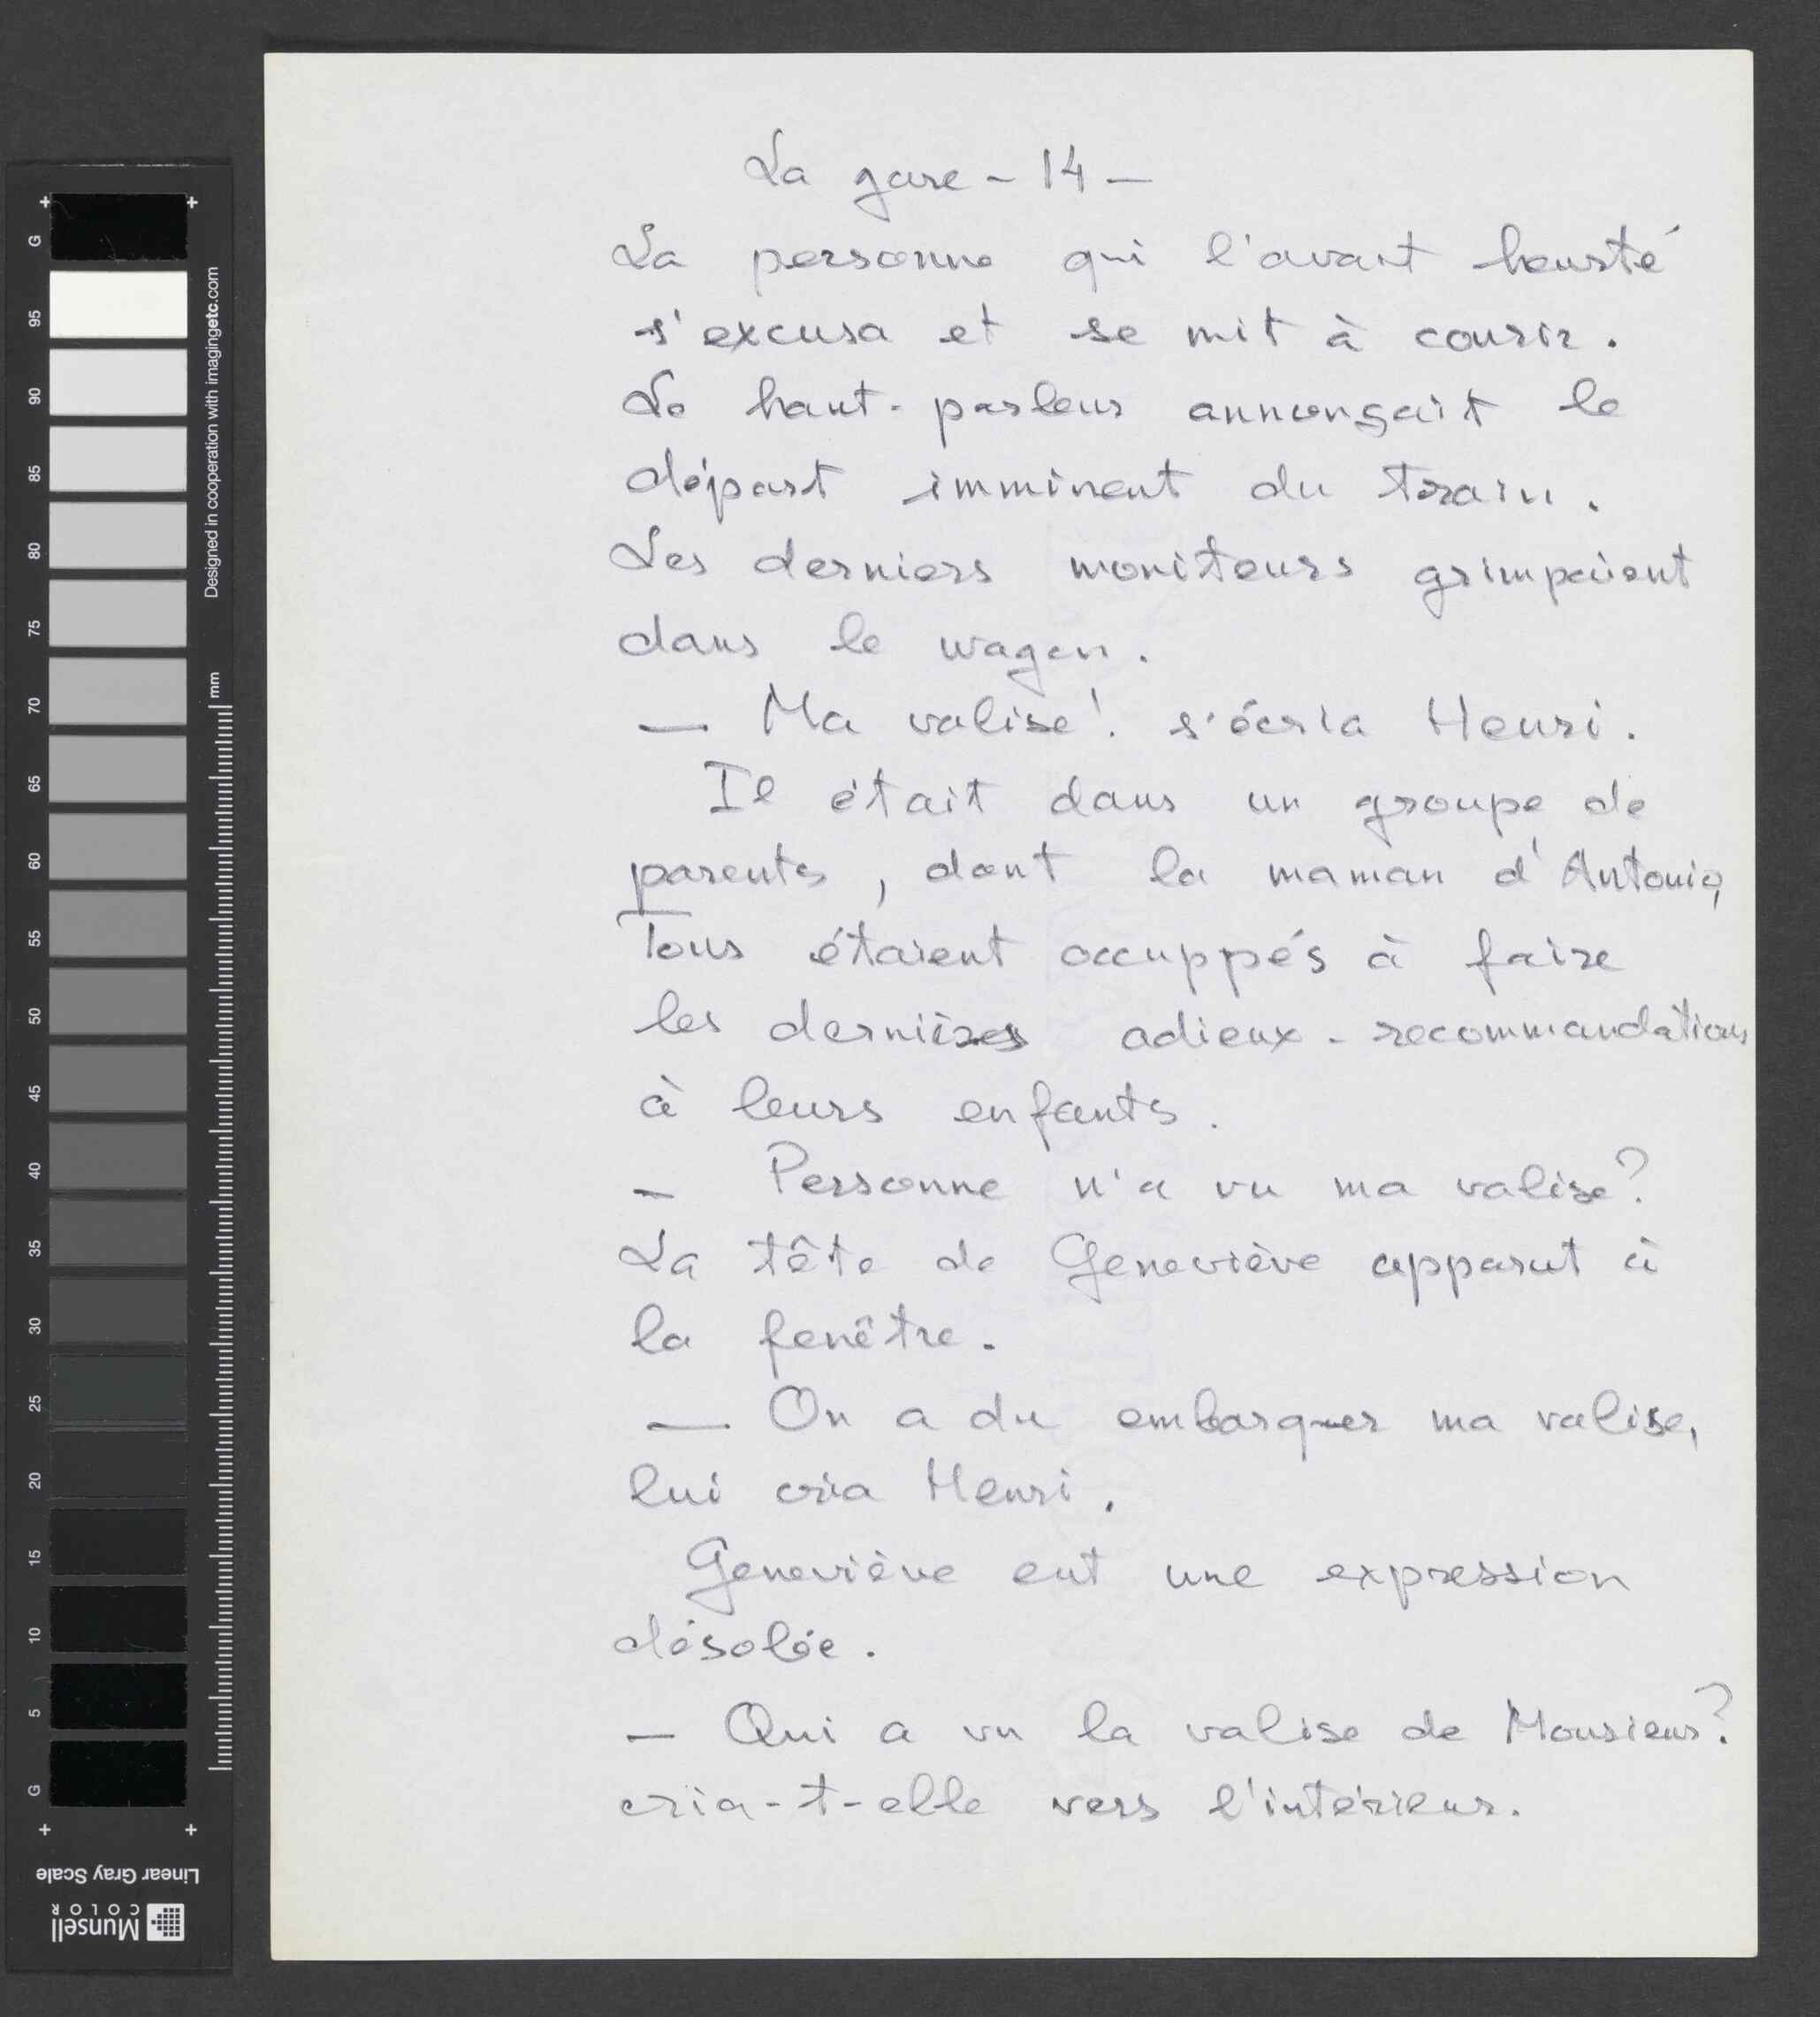 La gare - 14 -
La personne qui l'avait heurté
s'excusa et se mit à courir.
Le haut-parleur annonçait le
départ imminent du train.
Les derniers moniteurs grimpaient
dans le wagon.
— Ma valise! s'écria Henri.
Il était dans un groupe de
parents, dont la maman d'Antonio,
Tous étaient occuppés à faire
les dernières adieux - recommandations
à leurs enfants.
- Personne n'a vu ma valise?
La tête de Geneviève apparut à
la fenêtre.
— On a du embarquer ma valise,
lui cria Henri.
Geneviève eut une expression
désolée.
— Qui a vu la valise de Monsieur?
cria-t-elle vers l'intérieur.
G 95 90 85 80 75 70 65 60 55 50 45 40 35 30 25 20 15 10 5 G
Designed in cooperation with imagingetc.com
mm
Linear Gray Scale
Munsell
COLOR